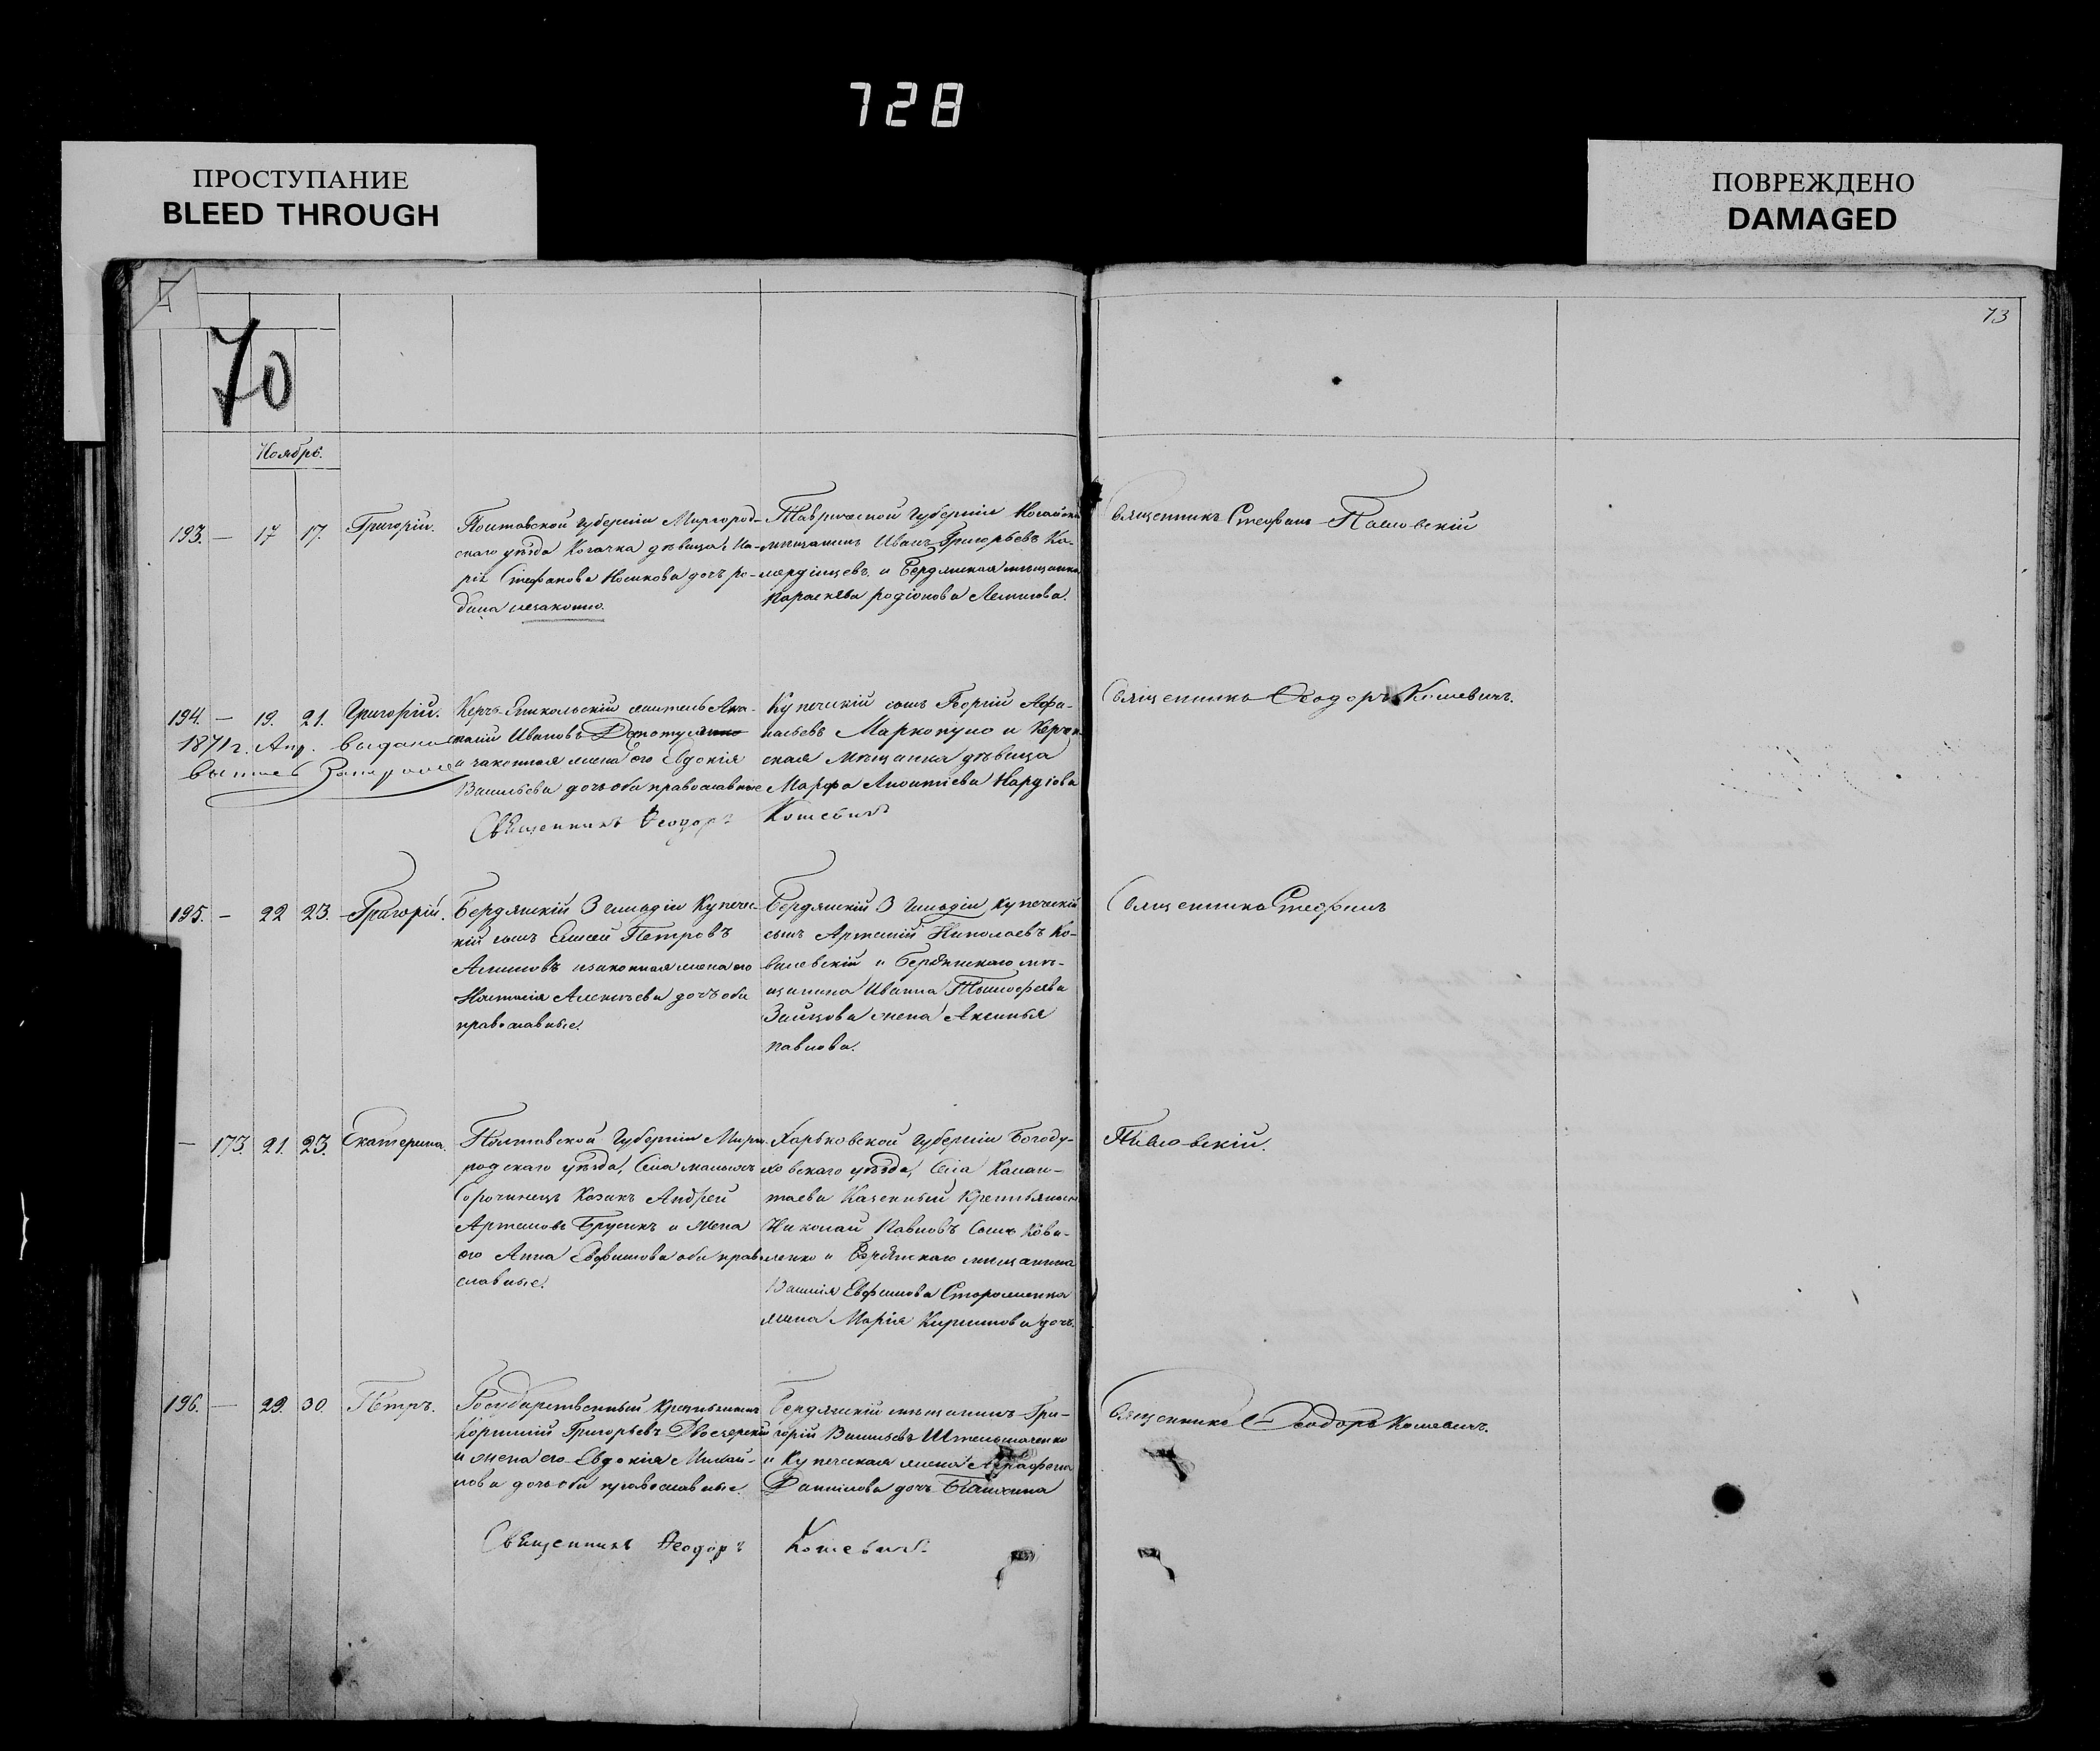 728
ПРОСТУПАНИЕ
BLEED THROUGH
ПОВРЕЖДЕНО
DAMAGED
70
73
Ноябрь.
193. — 17 17. Григорій.
Полтавской губерніи Миргород-
скаго уѣзда Козачка дѣвица Ма-
рія Стефанова дочь ро-
дила незаконно.
Таврической губерніи Ногайскій
мѣщанинъ Иванъ Григорьевъ
и Бердянская мѣщанка
Параскева родіонова
Священникъ Стефанъ Павловскій
194. — 19. 21. Григорій.
1871 г. Апр. выдана
Керчь Еникольскій житель
Ивановъ
и законная жена его Евдокія
Васильева дочь оба православные
Купеческій сынъ Георгій Афа-
насьевъ Маркопуло и Керчен
ская Мѣщанка дѣвица
Марфа
Священникъ Феодоръ Кошевичъ
Священникъ Феодоръ Кошевичъ.
195. — 22 23. Григорій.
Бердянскій 3 гильдіи Купечес-
кій сынъ Елисей Петровъ
изаконная жена его
Алексѣева дочь оба
православные.
Бердянскій 3 Гильдіи купеческій
сынъ Артемій Николаевъ Ко-
валевскій и Бердянскаго мѣ-
щанина Ивана Тимофеева
Зайцова жена Аксинья
павлова.
Священникъ Стефанъ
— 173. 21. 23. Екатерина.
Полтавской Губерніи Мирго
родскаго уѣзда, Села малыхъ
Сорочинецъ Козакъ Андрей
Артемовъ и жена
его Анна Евфимова оба право
славные.
Харьковской Губерніи Богоду-
ховскаго уѣзда, Села
Казенный Крестьянинъ
Николай Павловъ Сынъ Кова-
ленко и Бердянскаго мѣщанина
Василія Евфимова
жена Марія Кирилова дочь.
Павловскій.
196. — 29. 30. Петръ.
Государственный Крестьянинъ
Корнилій Григорьевъ
и жена его Евдокія Михай-
лова дочь оба православные.
Бердянскій мѣщанинъ Гри-
горій Васильевъ
и Купеческая жена Аграфена
Даниилова дочь
Священникъ Феодоръ Кошевичъ.
Священникъ Феодоръ Кошевичъ.